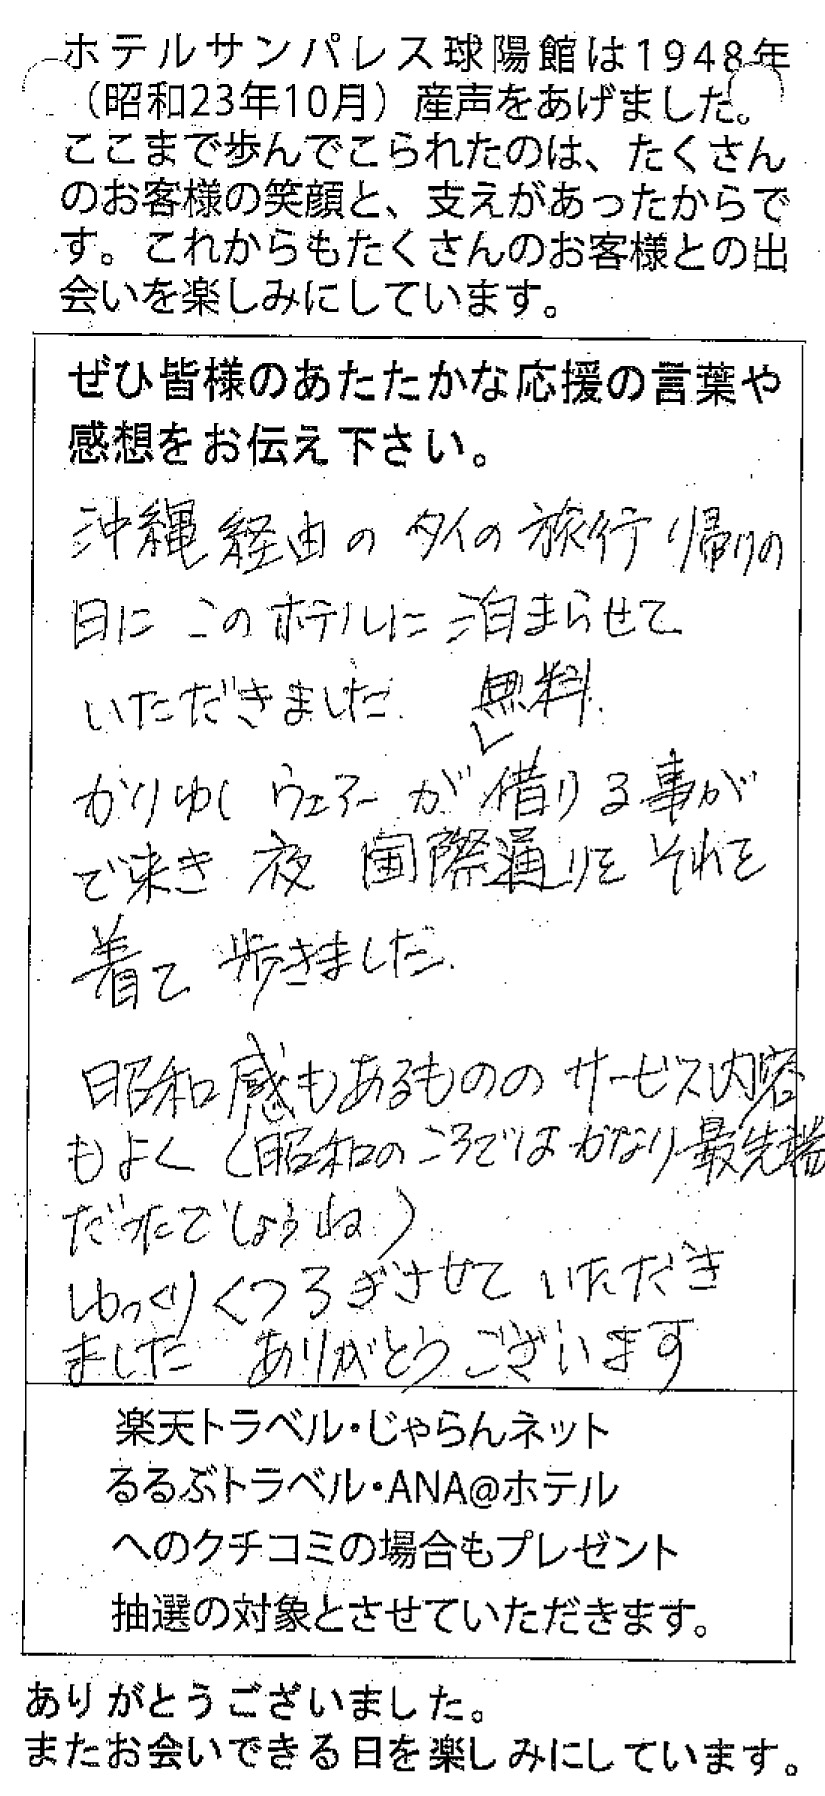 ホテルサンパレス球陽館は1948年
（昭和23年10月）産声をあげました。
ここまで歩んでこられたのは、たくさん
のお客様の笑顔と、支えがあったからで
す。これからもたくさんのお客様との出
会いを楽しみにしています。
ぜひ皆様のあたたかな応援の言葉や
感想をお伝え下さい。
沖縄経由のタイの旅行帰りの
日にこのホテルに泊まらせて
いただきました. 無料.
かりゆしウェアーが借りる事が
で来き 夜 国際通りを それを
着て 歩きました.
昭和感もあるものの サービス内容
もよく（昭和のころではかなり最先端
だったでしょうね）
ゆっくりくつろぎさせていただき
ました ありがとうございます
楽天トラベル・じゃらんネット
るるぶトラベル・ANA@ホテル
へのクチコミの場合もプレゼント
抽選の対象とさせていただきます。
ありがとうございました。
またお会いできる日を楽しみにしています。